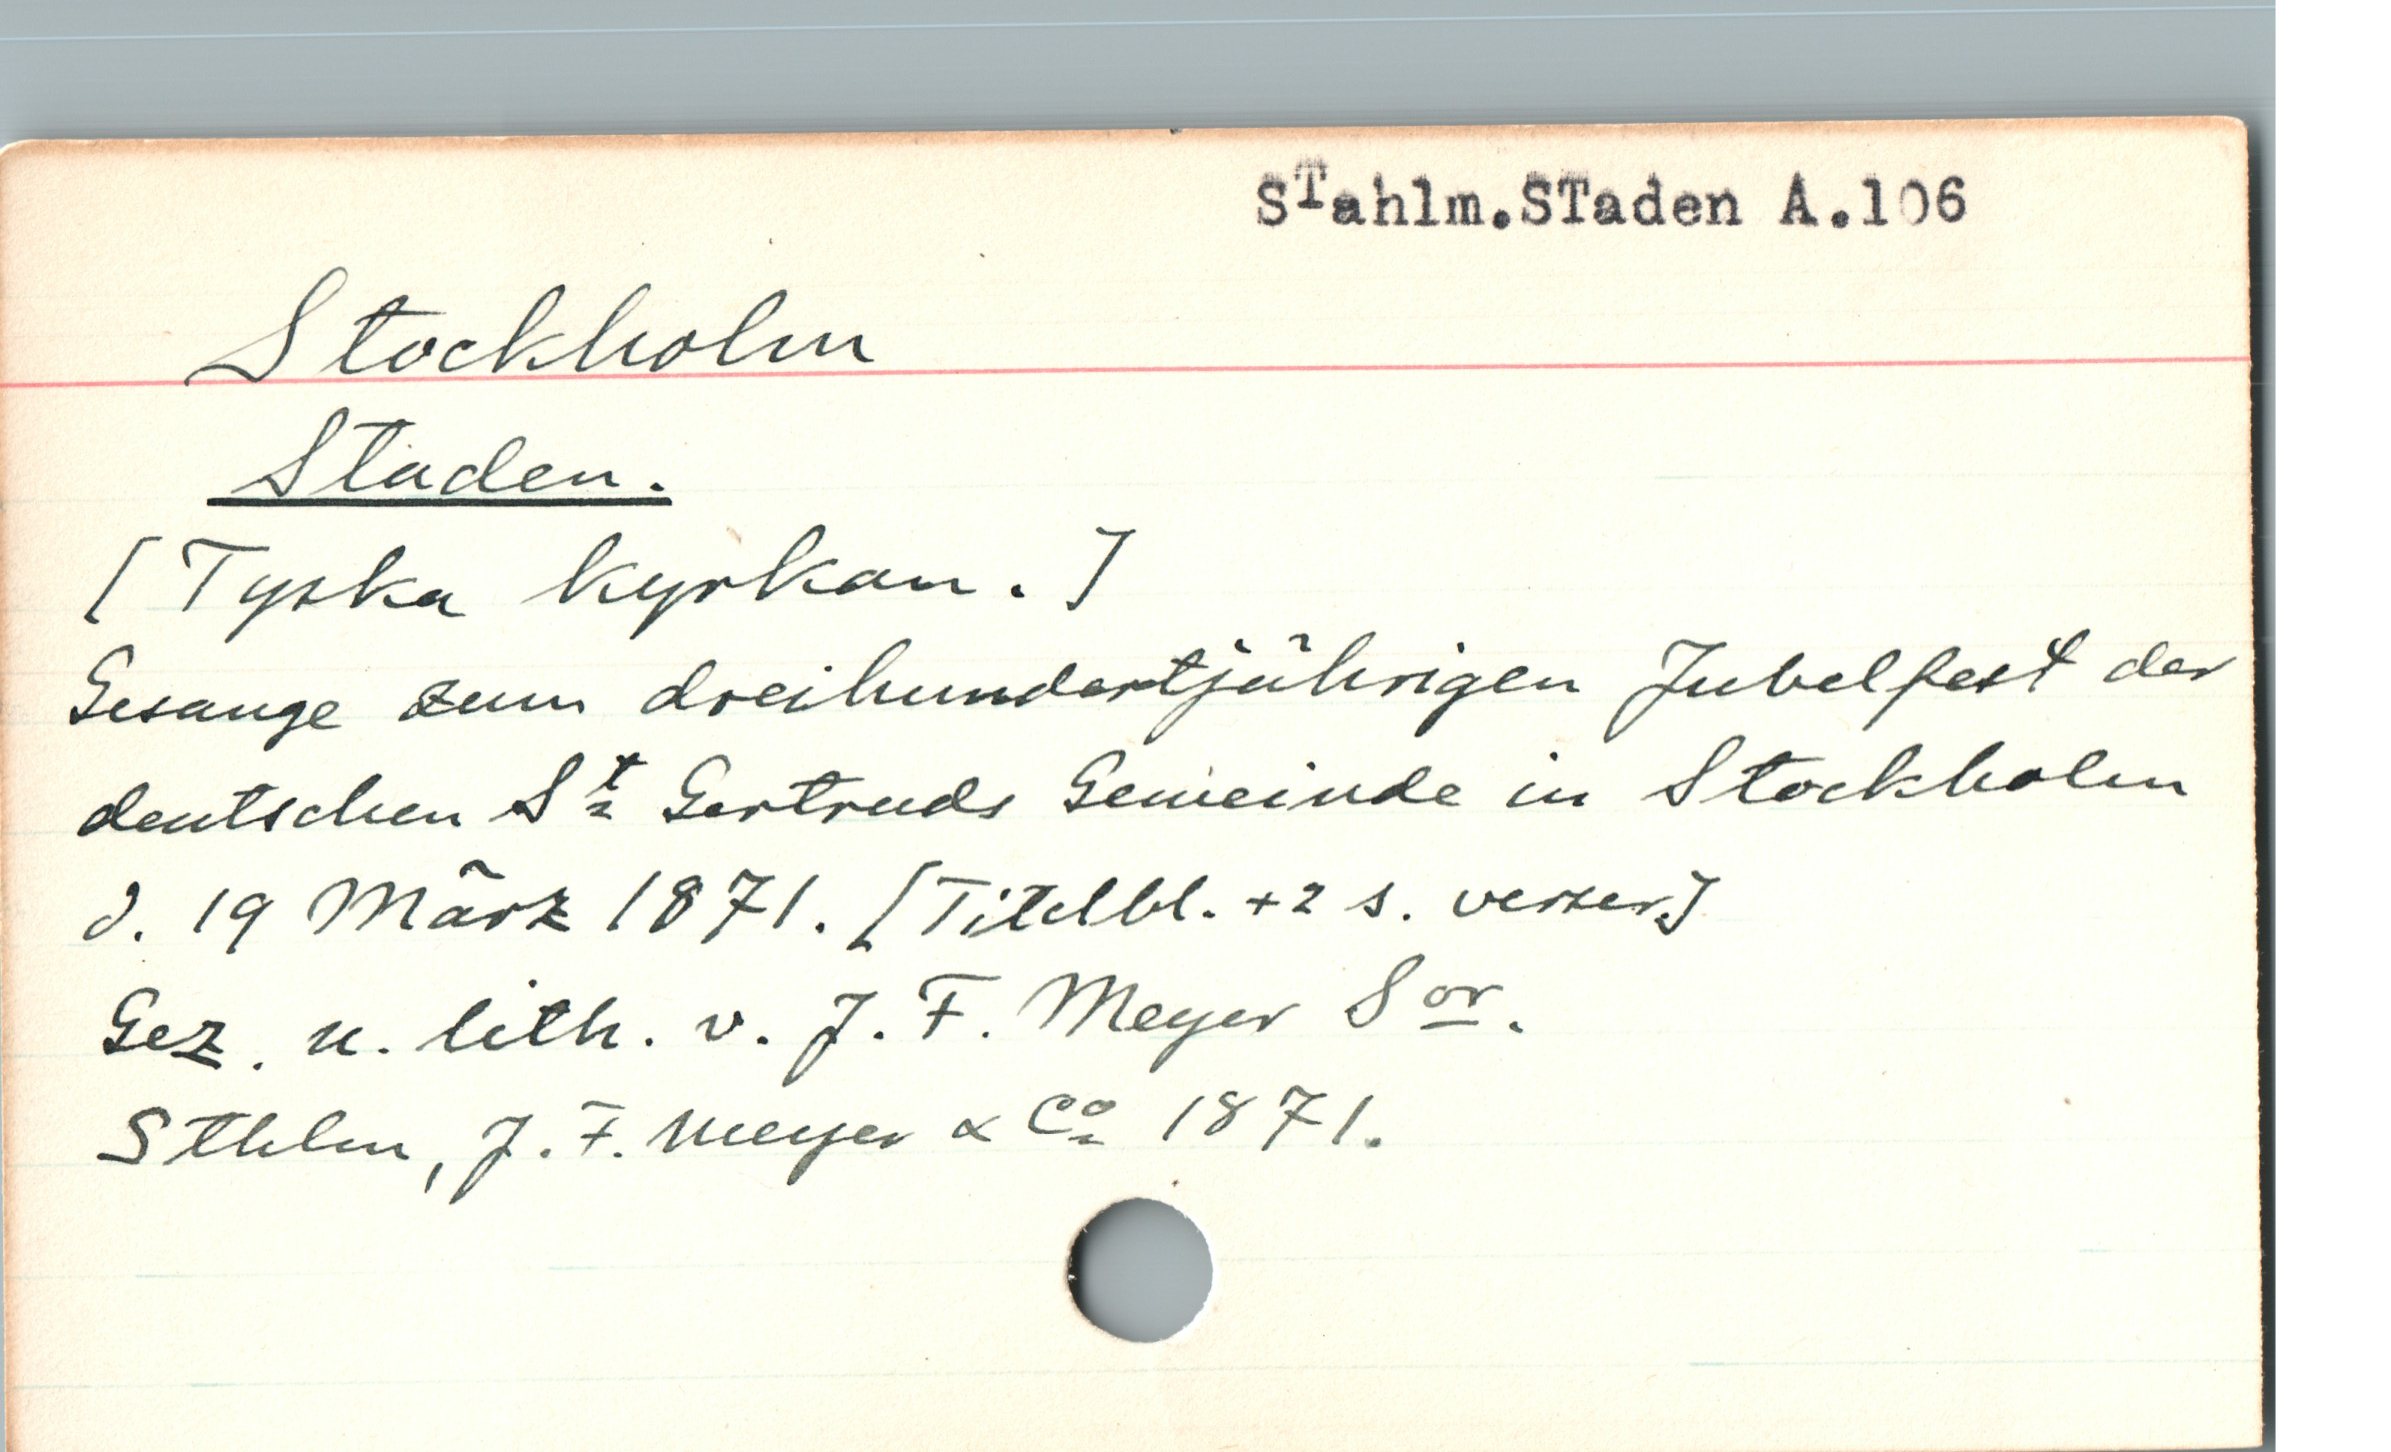 STahlm.STaden A.106
Stockholm
Staden.
[Tyska kyrkan.]
Gesange zum dreihundertjährigen Jubelfest der
deutschen St Gertruds Gemeinde in Stockholm
d. 19 März 1871. [Titelbl. + 2 s. verser]
Gez. u. lith. v. J. F. Meyer Sor.
Sthlm, J. F. Meyer & Co 1871.